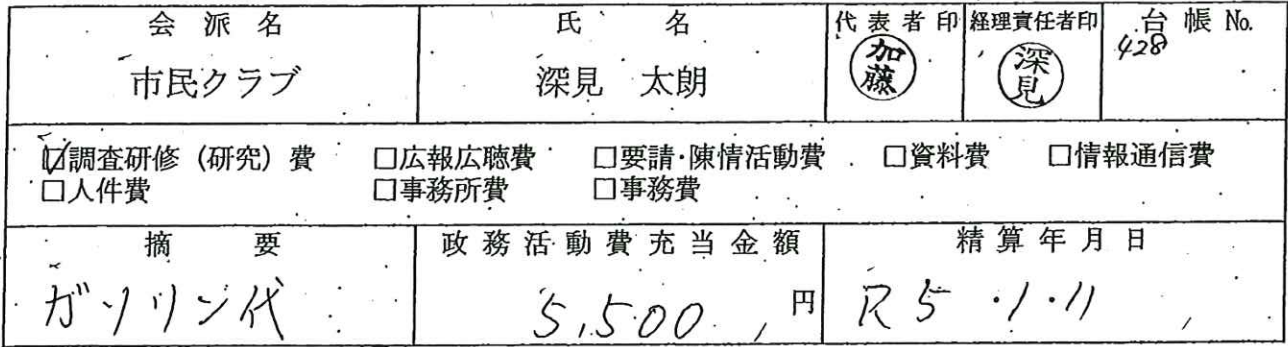 会派名 氏名 代表者印 経理責任者印 台帳No.
市民クラブ 深見 太朗 加藤 深見 428
☑調査研修(研究)費 □広報広聴費 □要請・陳情活動費 □資料費 □情報通信費
□人件費 □事務所費 □事務費
摘要 政務活動費充当金額 精算年月日
ガソリン代 5,500 円 R5・1・11